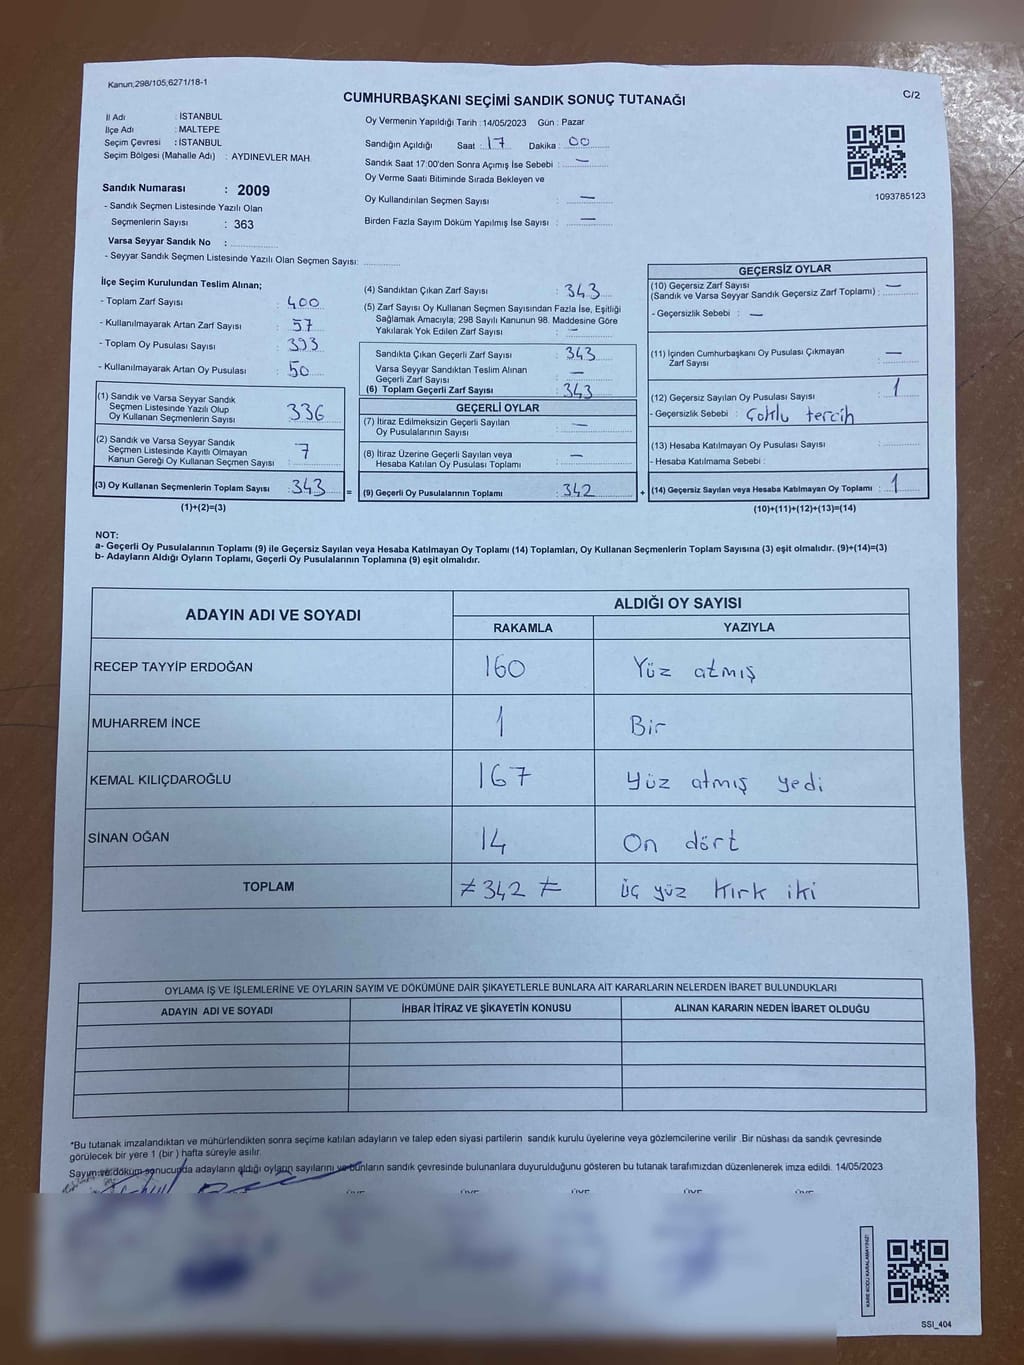 Kanun,298/105,6271/18-1
C/2
CUMHURBAŞKANI SEÇİMİ SANDIK SONUÇ TUTANAĞI
İl Adı : İSTANBUL
İlçe Adı : MALTEPE
Seçim Çevresi : İSTANBUL
Seçim Bölgesi (Mahalle Adı) : AYDINEVLER MAH.
Sandık Numarası : 2009
- Sandık Seçmen Listesinde Yazılı Olan
Seçmenlerin Sayısı : 363
Varsa Seyyar Sandık No :
- Seyyar Sandık Seçmen Listesinde Yazılı Olan Seçmen Sayısı:
Oy Vermenin Yapıldığı Tarih : 14/05/2023 Gün : Pazar
Sandığın Açıldığı Saat : 17 Dakika : 00
Sandık Saat 17:00'den Sonra Açımış İse Sebebi : —
Oy Verme Saati Bitiminde Sırada Bekleyen ve
Oy Kullandırılan Seçmen Sayısı : —
Birden Fazla Sayım Döküm Yapılmış İse Sayısı : —
1093785123
İlçe Seçim Kurulundan Teslim Alınan;
- Toplam Zarf Sayısı : 400
- Kullanılmayarak Artan Zarf Sayısı : 57
- Toplam Oy Pusulası Sayısı : 393
- Kullanılmayarak Artan Oy Pusulası : 50
(1) Sandık ve Varsa Seyyar Sandık
Seçmen Listesinde Yazılı Olup
Oy Kullanan Seçmenlerin Sayısı : 336
(2) Sandık ve Varsa Seyyar Sandık
Seçmen Listesinde Kayıtlı Olmayan
Kanun Gereği Oy Kullanan Seçmen Sayısı : 7
(3) Oy Kullanan Seçmenlerin Toplam Sayısı : 343
(1)+(2)=(3)
(4) Sandıktan Çıkan Zarf Sayısı : 343
(5) Zarf Sayısı Oy Kullanan Seçmen Sayısından Fazla İse, Eşitliği
Sağlamak Amacıyla, 298 Sayılı Kanunun 98. Maddesine Göre
Yakılarak Yok Edilen Zarf Sayısı : —
Sandıkta Çıkan Geçerli Zarf Sayısı : 343
Varsa Seyyar Sandıktan Teslim Alınan
Geçerli Zarf Sayısı : —
(6) Toplam Geçerli Zarf Sayısı : 343
GEÇERLİ OYLAR
(7) İtiraz Edilmeksizin Geçerli Sayılan
Oy Pusulalarının Sayısı : —
(8) İtiraz Üzerine Geçerli Sayılan veya
Hesaba Katılan Oy Pusulası Toplamı : —
= (9) Geçerli Oy Pusulalarının Toplamı : 342
GEÇERSİZ OYLAR
(10) Geçersiz Zarf Sayısı
(Sandık ve Varsa Seyyar Sandık Geçersiz Zarf Toplamı) : —
- Geçersizlik Sebebi : —
(11) İçinden Cumhurbaşkanı Oy Pusulası Çıkmayan
Zarf Sayısı : —
(12) Geçersiz Sayılan Oy Pusulası Sayısı : 1
- Geçersizlik Sebebi : Çoklu tercih
(13) Hesaba Katılmayan Oy Pusulası Sayısı :
- Hesaba Katılmama Sebebi :
+ (14) Geçersiz Sayılan veya Hesaba Katılmayan Oy Toplamı : 1
(10)+(11)+(12)+(13)=(14)
NOT:
a- Geçerli Oy Pusulalarının Toplamı (9) ile Geçersiz Sayılan veya Hesaba Katılmayan Oy Toplamı (14) Toplamları, Oy Kullanan Seçmenlerin Toplam Sayısına (3) eşit olmalıdır. (9)+(14)=(3)
b- Adayların Aldığı Oyların Toplamı, Geçerli Oy Pusulalarının Toplamına (9) eşit olmalıdır.
ADAYIN ADI VE SOYADI
ALDIĞI OY SAYISI
RAKAMLA YAZIYLA
RECEP TAYYİP ERDOĞAN 160 Yüz atmış
MUHARREM İNCE 1 Bir
KEMAL KILIÇDAROĞLU 167 Yüz atmış yedi
SİNAN OĞAN 14 On dört
TOPLAM ≠ 342 ≠ üç yüz Kırk iki
OYLAMA İŞ VE İŞLEMLERİNE VE OYLARIN SAYIM VE DÖKÜMÜNE DAİR ŞİKAYETLERLE BUNLARA AİT KARARLARIN NELERDEN İBARET BULUNDUKLARI
ADAYIN ADI VE SOYADI İHBAR İTİRAZ VE ŞİKAYETİN KONUSU ALINAN KARARIN NEDEN İBARET OLDUĞU
*Bu tutanak imzalandıktan ve mühürlendikten sonra seçime katılan adayların ve talep eden siyasi partilerin sandık kurulu üyelerine veya gözlemcilerine verilir .Bir nüshası da sandık çevresinde
görülecek bir yere 1 (bir ) hafta süreyle asılır.
Sayım ve döküm sonucunda adayların aldığı oyların sayılarını ve bunların sandık çevresinde bulunanlara duyurulduğunu gösteren bu tutanak tarafımızdan düzenlenerek imza edildi. 14/05/2023
KARE KODU KARALAMAYINIZ!
SSI_404